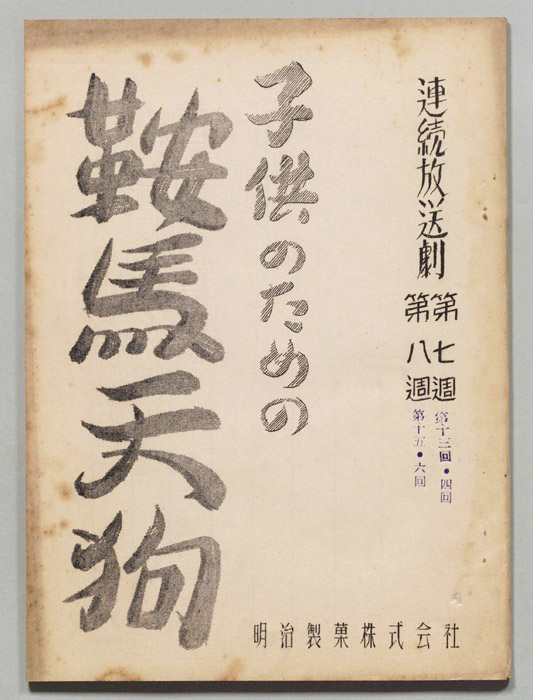 連続放送劇
第七週
第八週
第十三回・四回
第十五・六回
子供のための
鞍馬天狗
明治製菓株式会社